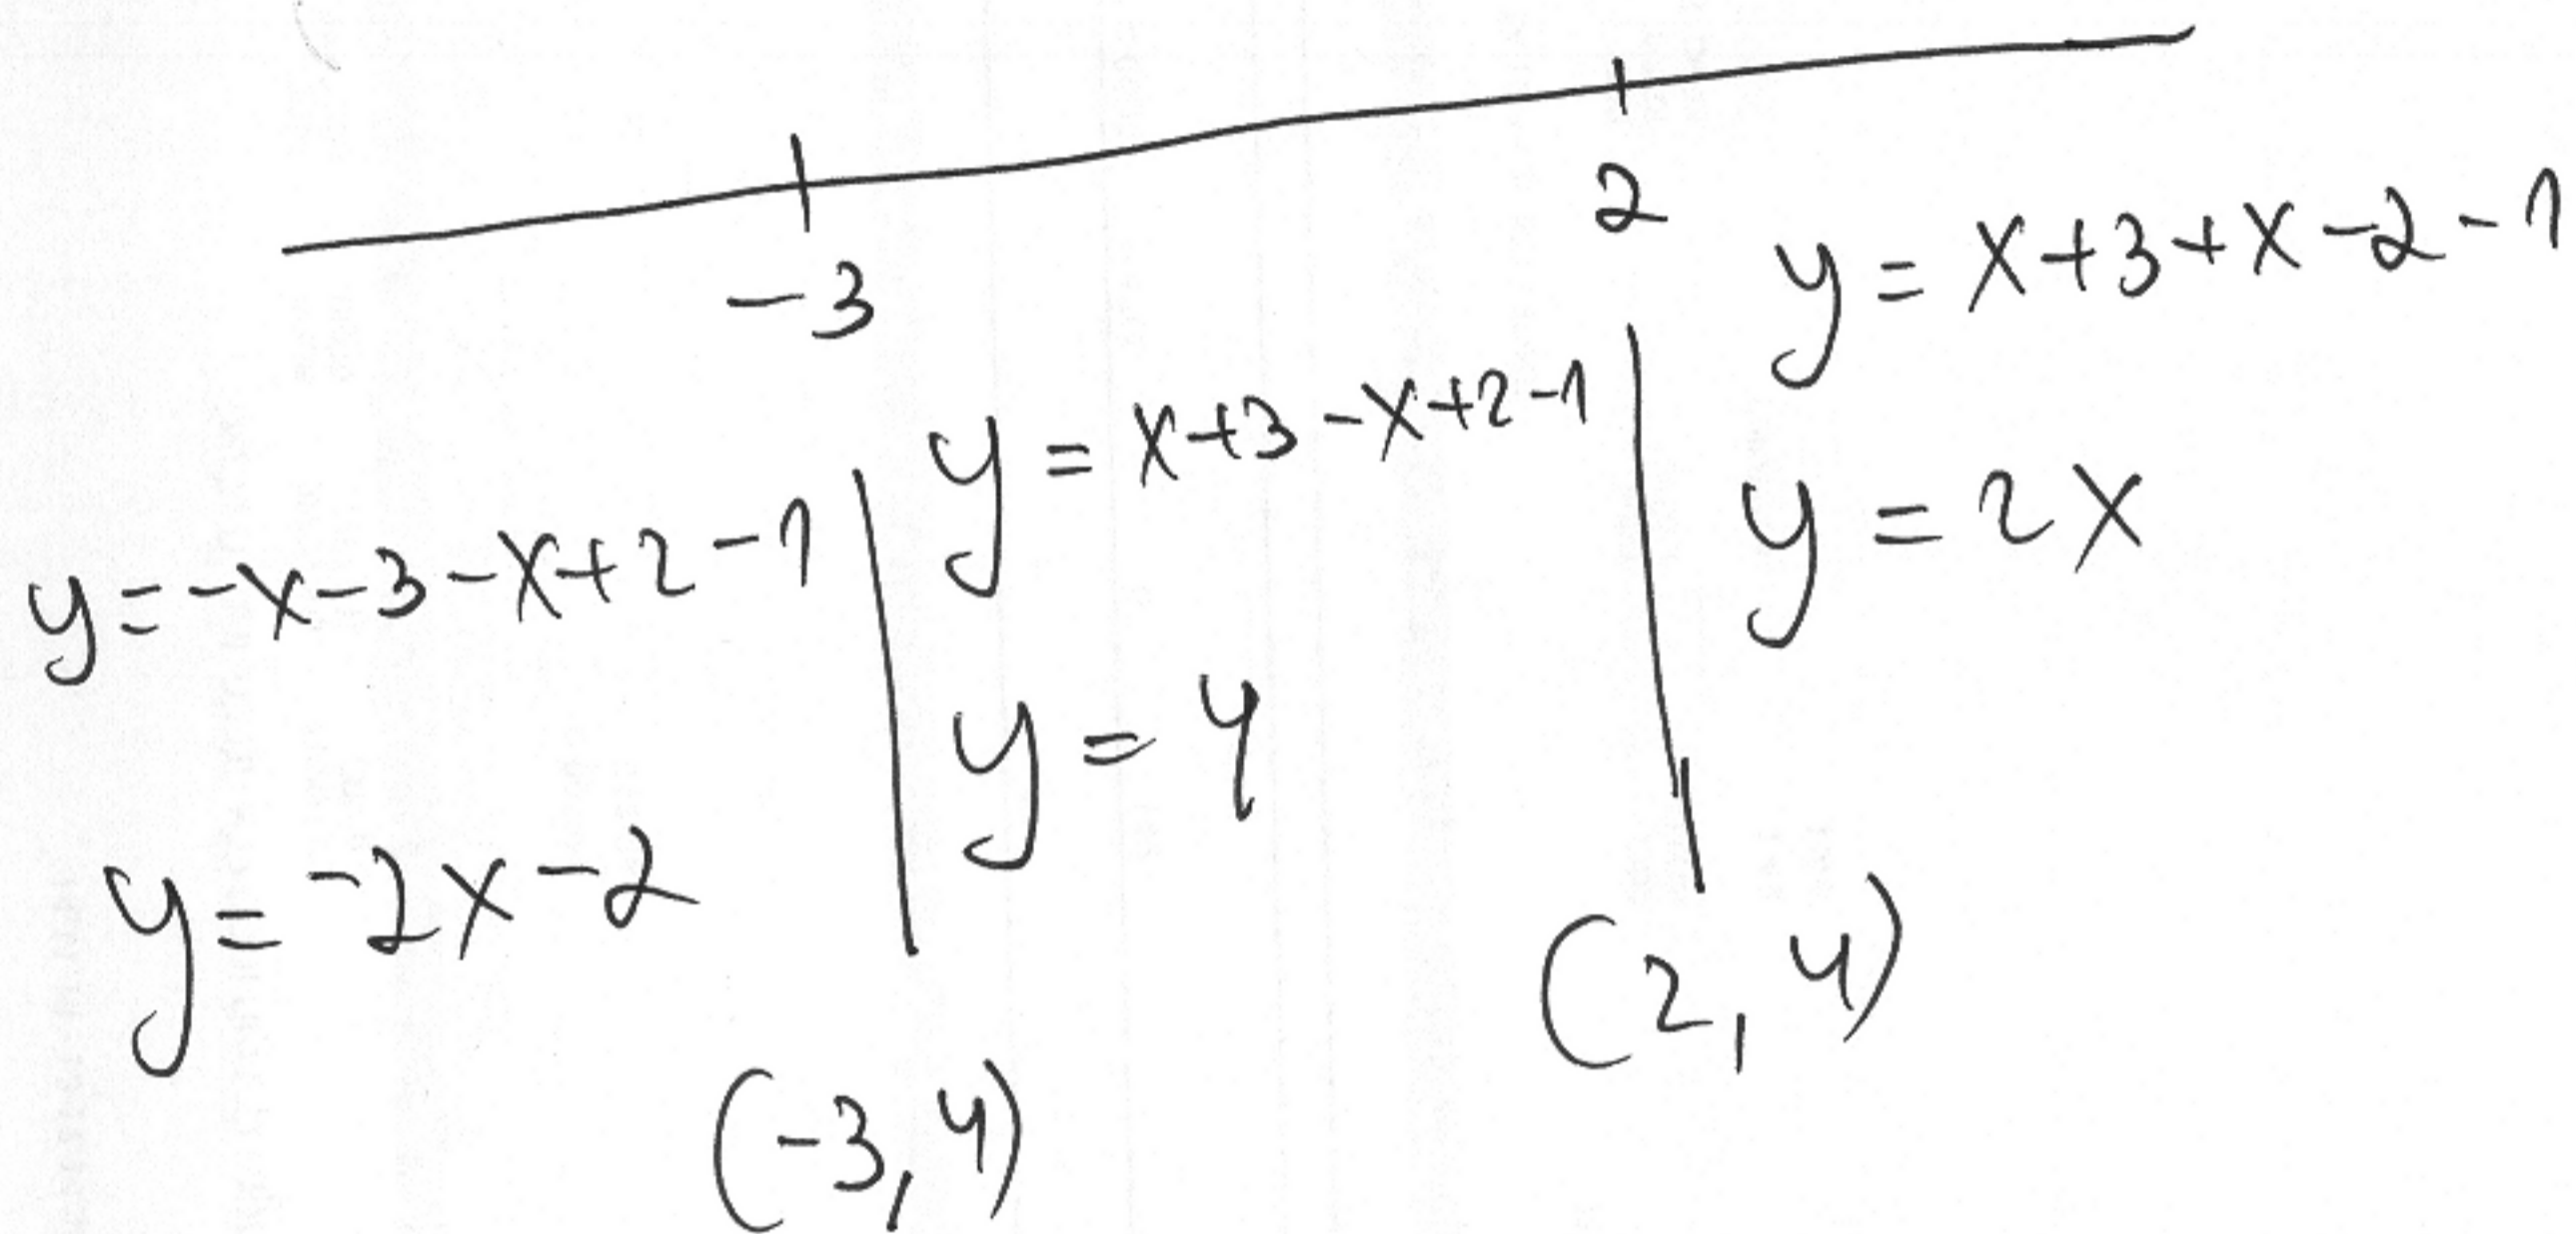 -3
2
y=-x-3-x+2-1
y=-2x-2
y=x+3-x+2-1
y=4
y=x+3+x-2-1
y=2x
(-3,4)
(2,4)